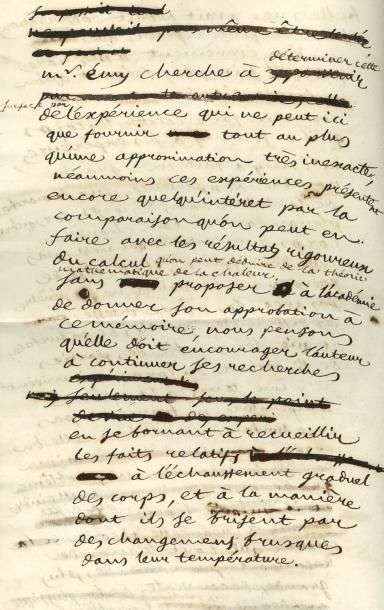 déterminer cette
mr. Emy cherche à
de l'expérience qui ne peut ici
que fournir tout au plus
qu'une approximation très inexacte,
néanmoins ces expériences présentent
encore quelqu'intéret par la
comparaison qu'on peut en
faire avec les résultats rigoureux
du calcul qu'on peut déduire de la théorie
mathématique de la chaleur.
sans proposer à l'académie
de donner son approbation à
ce mémoire, nous pensons
qu'elle doit encourager l'auteur
à continuer ses recherches
en se bornant à recueillir
les faits relatifs
à l'échauffement graduel
des corps, et à la manière
dont ils se brisent par
des changemens brusques
dans leur température.